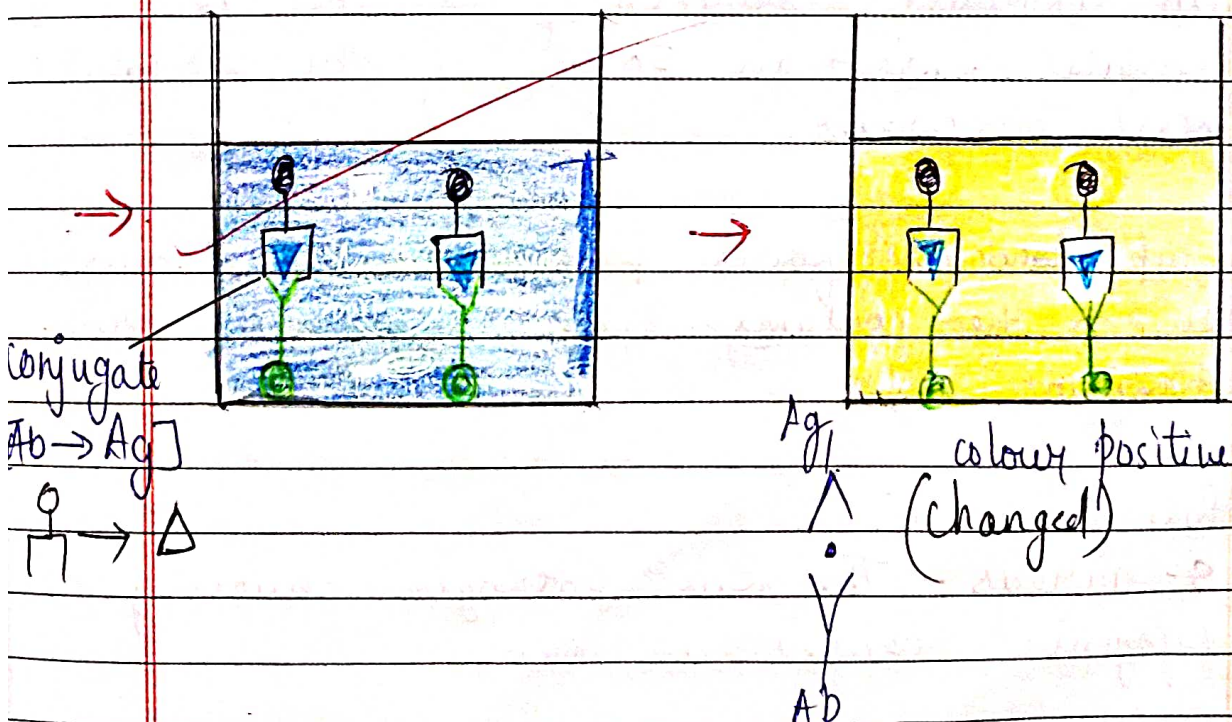 Conjugate
Ab → Ag]
Ag
colour positive
(Changed)
Ab